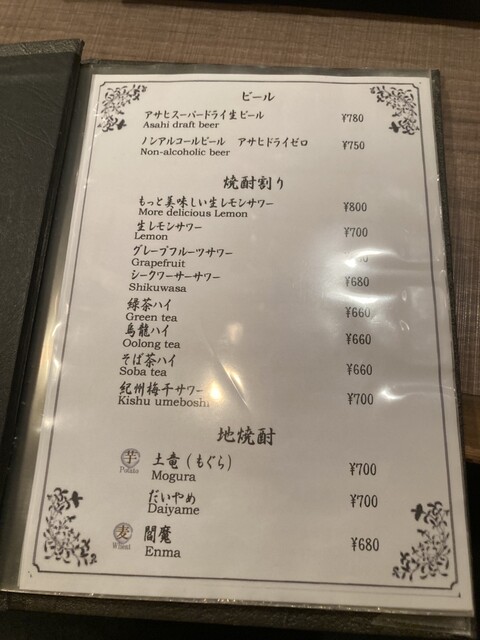 ビール
アサヒスーパードライ生ビール ¥780
Asahi draft beer
ノンアルコールビール アサヒドライゼロ ¥750
Non-alcoholic beer
焼酎割り
もっと美味しい生レモンサワー ¥800
More delicious Lemon
生レモンサワー ¥700
Lemon
グレープフルーツサワー
Grapefruit
シークワーサーサワー ¥680
Shikuwasa
緑茶ハイ ¥660
Green tea
烏龍ハイ ¥660
Oolong tea
そば茶ハイ ¥660
Soba tea
紀州梅干サワー ¥700
Kishu umeboshi
地焼酎
芋 土竜(もぐら) ¥700
Potato Mogura
だいやめ ¥700
Daiyame
麦 閻魔 ¥680
Wheat Enma